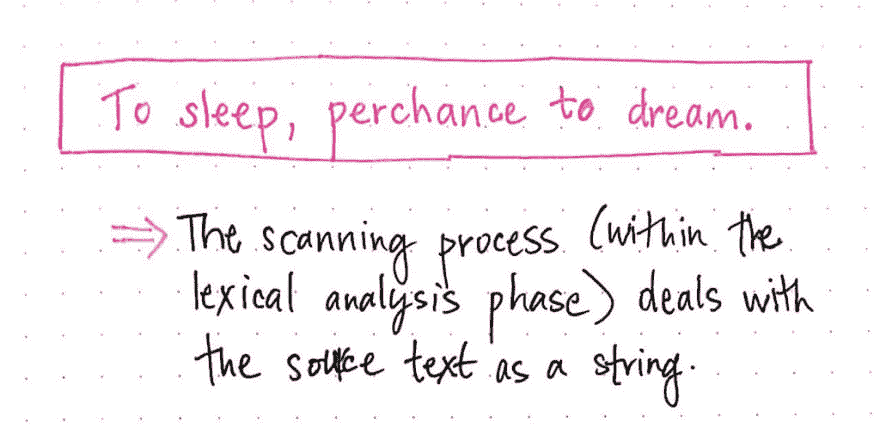 To sleep, perchance to dream.
⇒ The scanning process (within the
lexical analysis phase) deals with
the source text as a string.